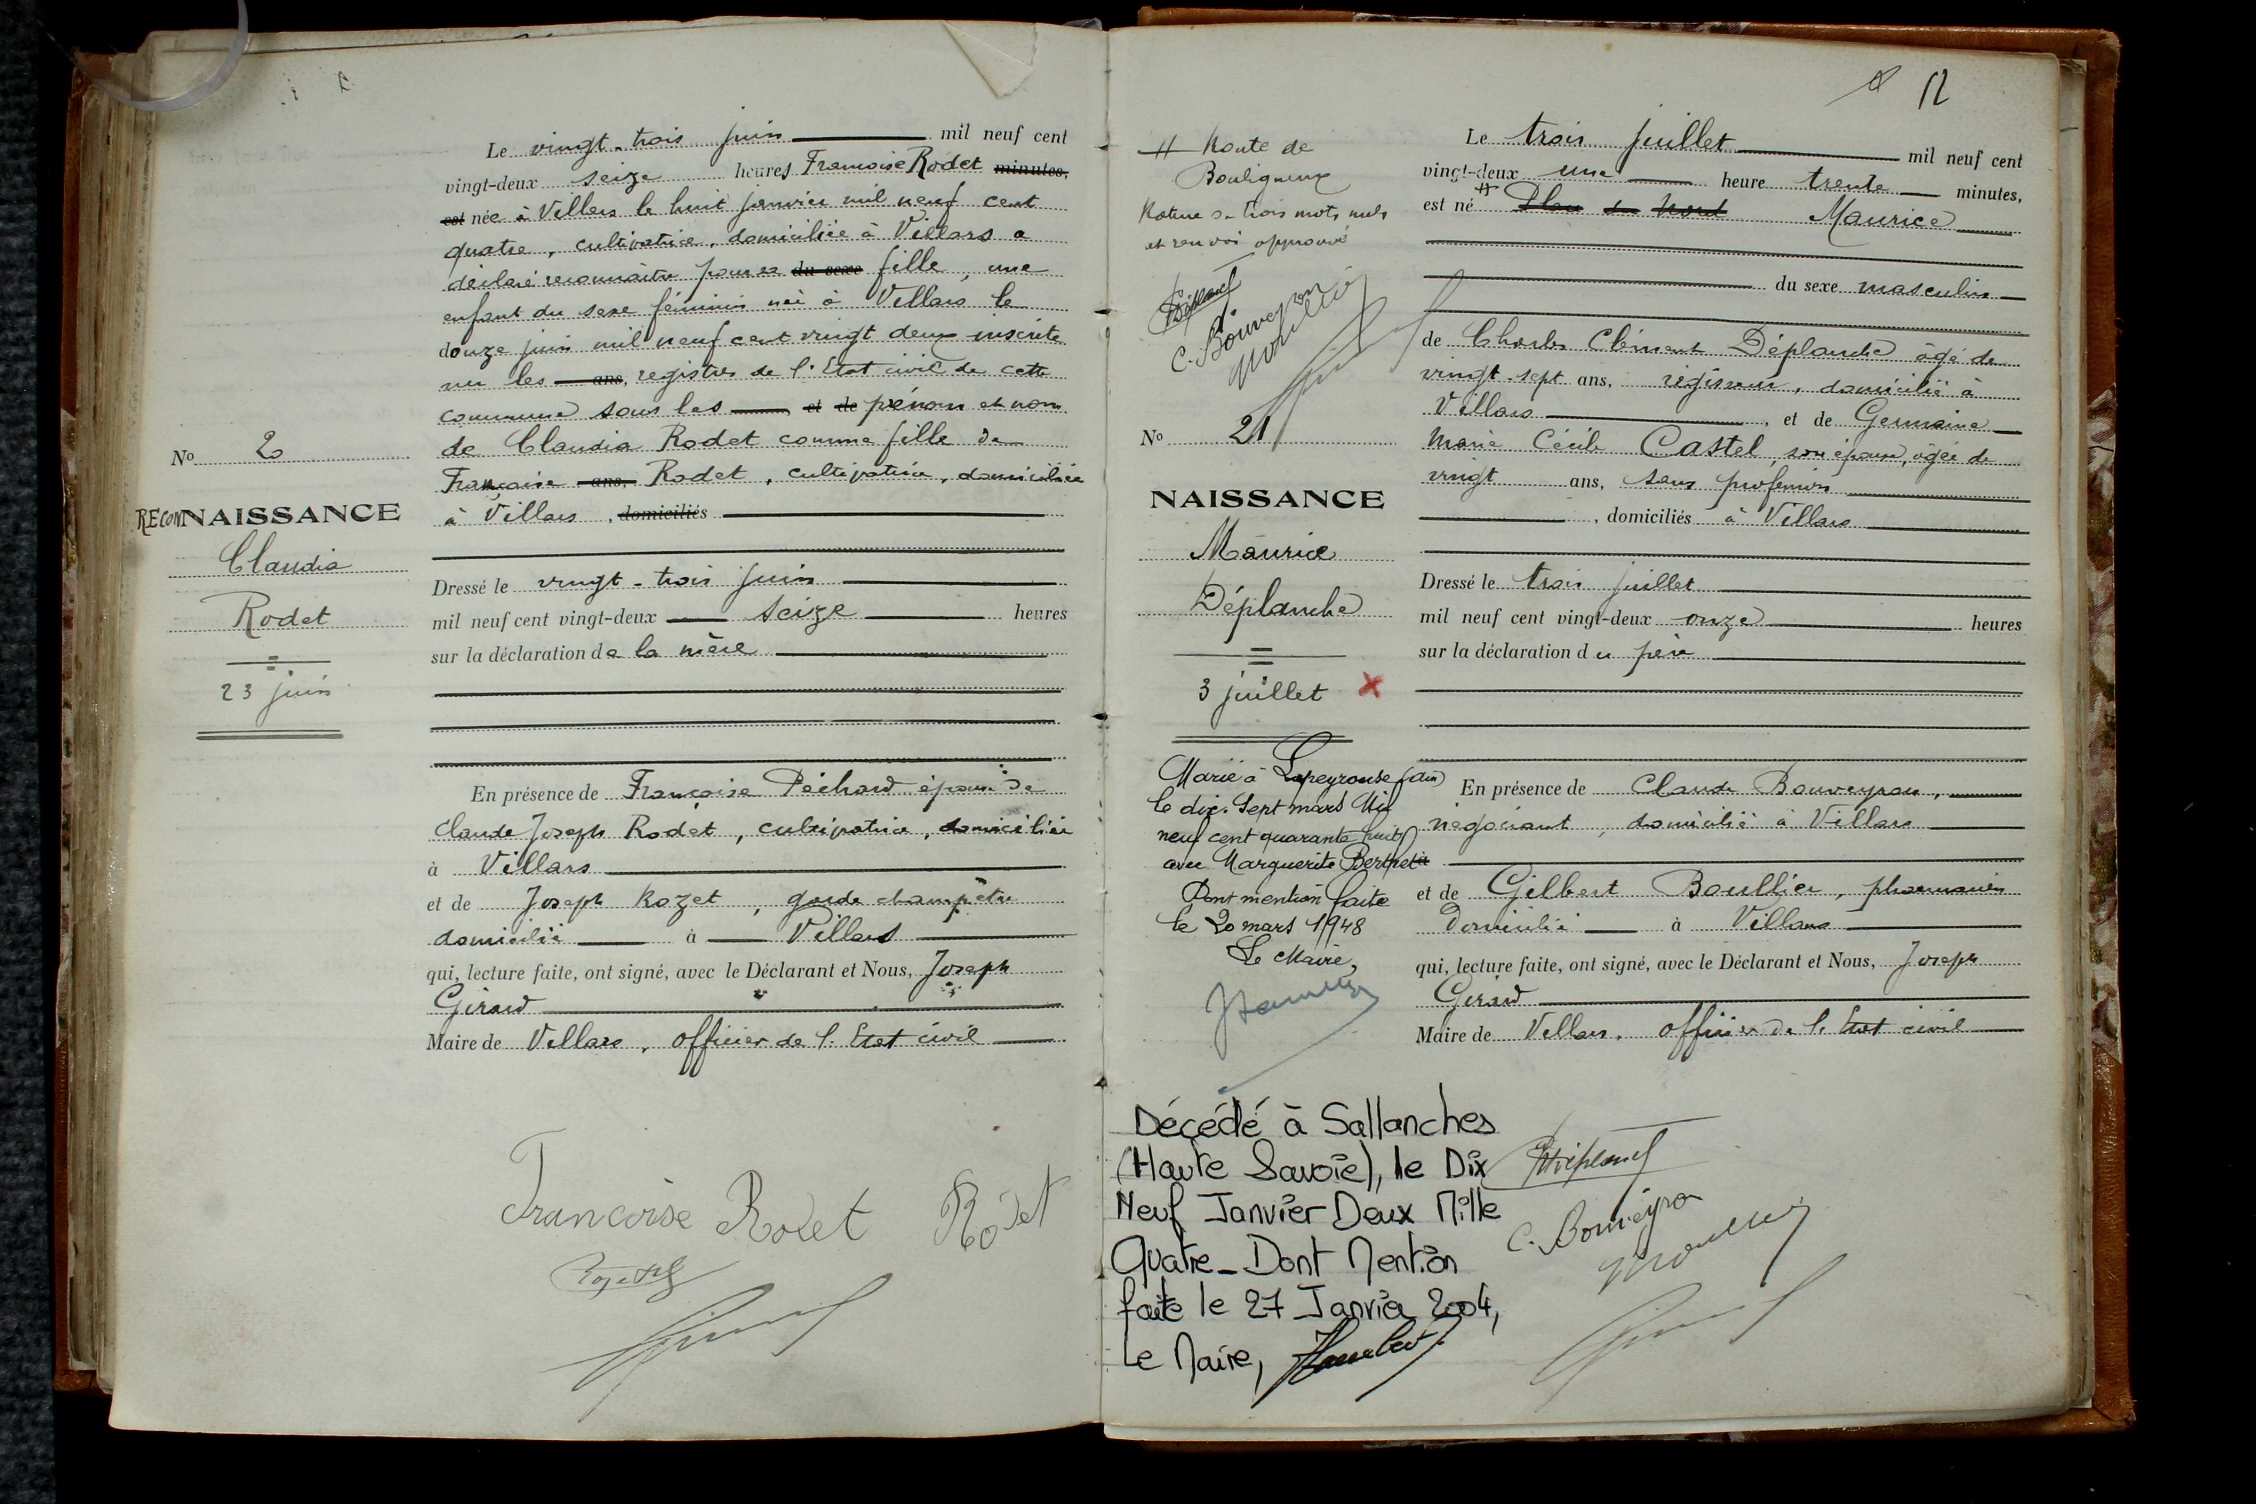 Le vingt-trois juin mil neuf cent
vingt-deux seize heures Françoise Rodet minutes,
est née à Villars le huit janvier mil neuf cent
quatre, cultivatrice, domiciliée à Villars a
déclaré reconnaître pour sa du sexe fille, une
enfant du sexe féminin née à Villars le
douze juin mil neuf cent vingt deux inscrite
sur les ans, registres de l'Etat civil de cette
commune sous les et de prénom et nom
de Claudia Rodet comme fille de
Françoise ans, Rodet, cultivatrice, domiciliée
à Villars, domiciliés
No 2
RECONNAISSANCE
Claudia
Rodet
23 juin
Dressé le vingt-trois juin
mil neuf cent vingt-deux seize heures
sur la déclaration de la mère
En présence de Françoise Péchard épouse de
Claude Joseph Rodet, cultivatrice, domiciliée
à Villars
et de Joseph Rozet, garde champêtre
domicilié à Villars
qui, lecture faite, ont signé, avec le Déclarant et Nous, Joseph
Girard
Maire de Villars, officier de l'Etat civil
Francoise Rodet Rodet
12
# Route de
Bouligneux
Rature de trois mots nuls
et renvoi approuvé
C. Bouveyron
No 21
NAISSANCE
Maurice
Déplanche
3 juillet
Marié à Lapeyrouse (ain)
le dix-sept mars Mil
neuf cent quarante huit
avec Marguerite
Dont mention faite
le 20 mars 1948
Le Maire,
Décédé à Sallanches
(Haute Savoie), le Dix
Neuf Janvier Deux Mille
Quatre_Dont Mention
faite le 27 Janvier 2004,
Le Maire,
Le trois juillet mil neuf cent
vingt-deux une heure trente minutes,
est né # Maurice
du sexe masculin
de Charles Clément Déplanche âgé de
vingt-sept ans, régisseur, domicilié à
Villars, et de Germaine
Marie Cécile Castel, son épouse, âgée de
vingt ans, sans profession
, domiciliés à Villars
Dressé le trois juillet
mil neuf cent vingt-deux onze heures
sur la déclaration du père
En présence de Claude Bouveyron,
négociant, domicilié à Villars
et de Gilbert Boullier, pharmacien
Domicilié à Villars
qui, lecture faite, ont signé, avec le Déclarant et Nous, Joseph
Girard
Maire de Villars, officier de l'Etat civil
C. Bouveyron